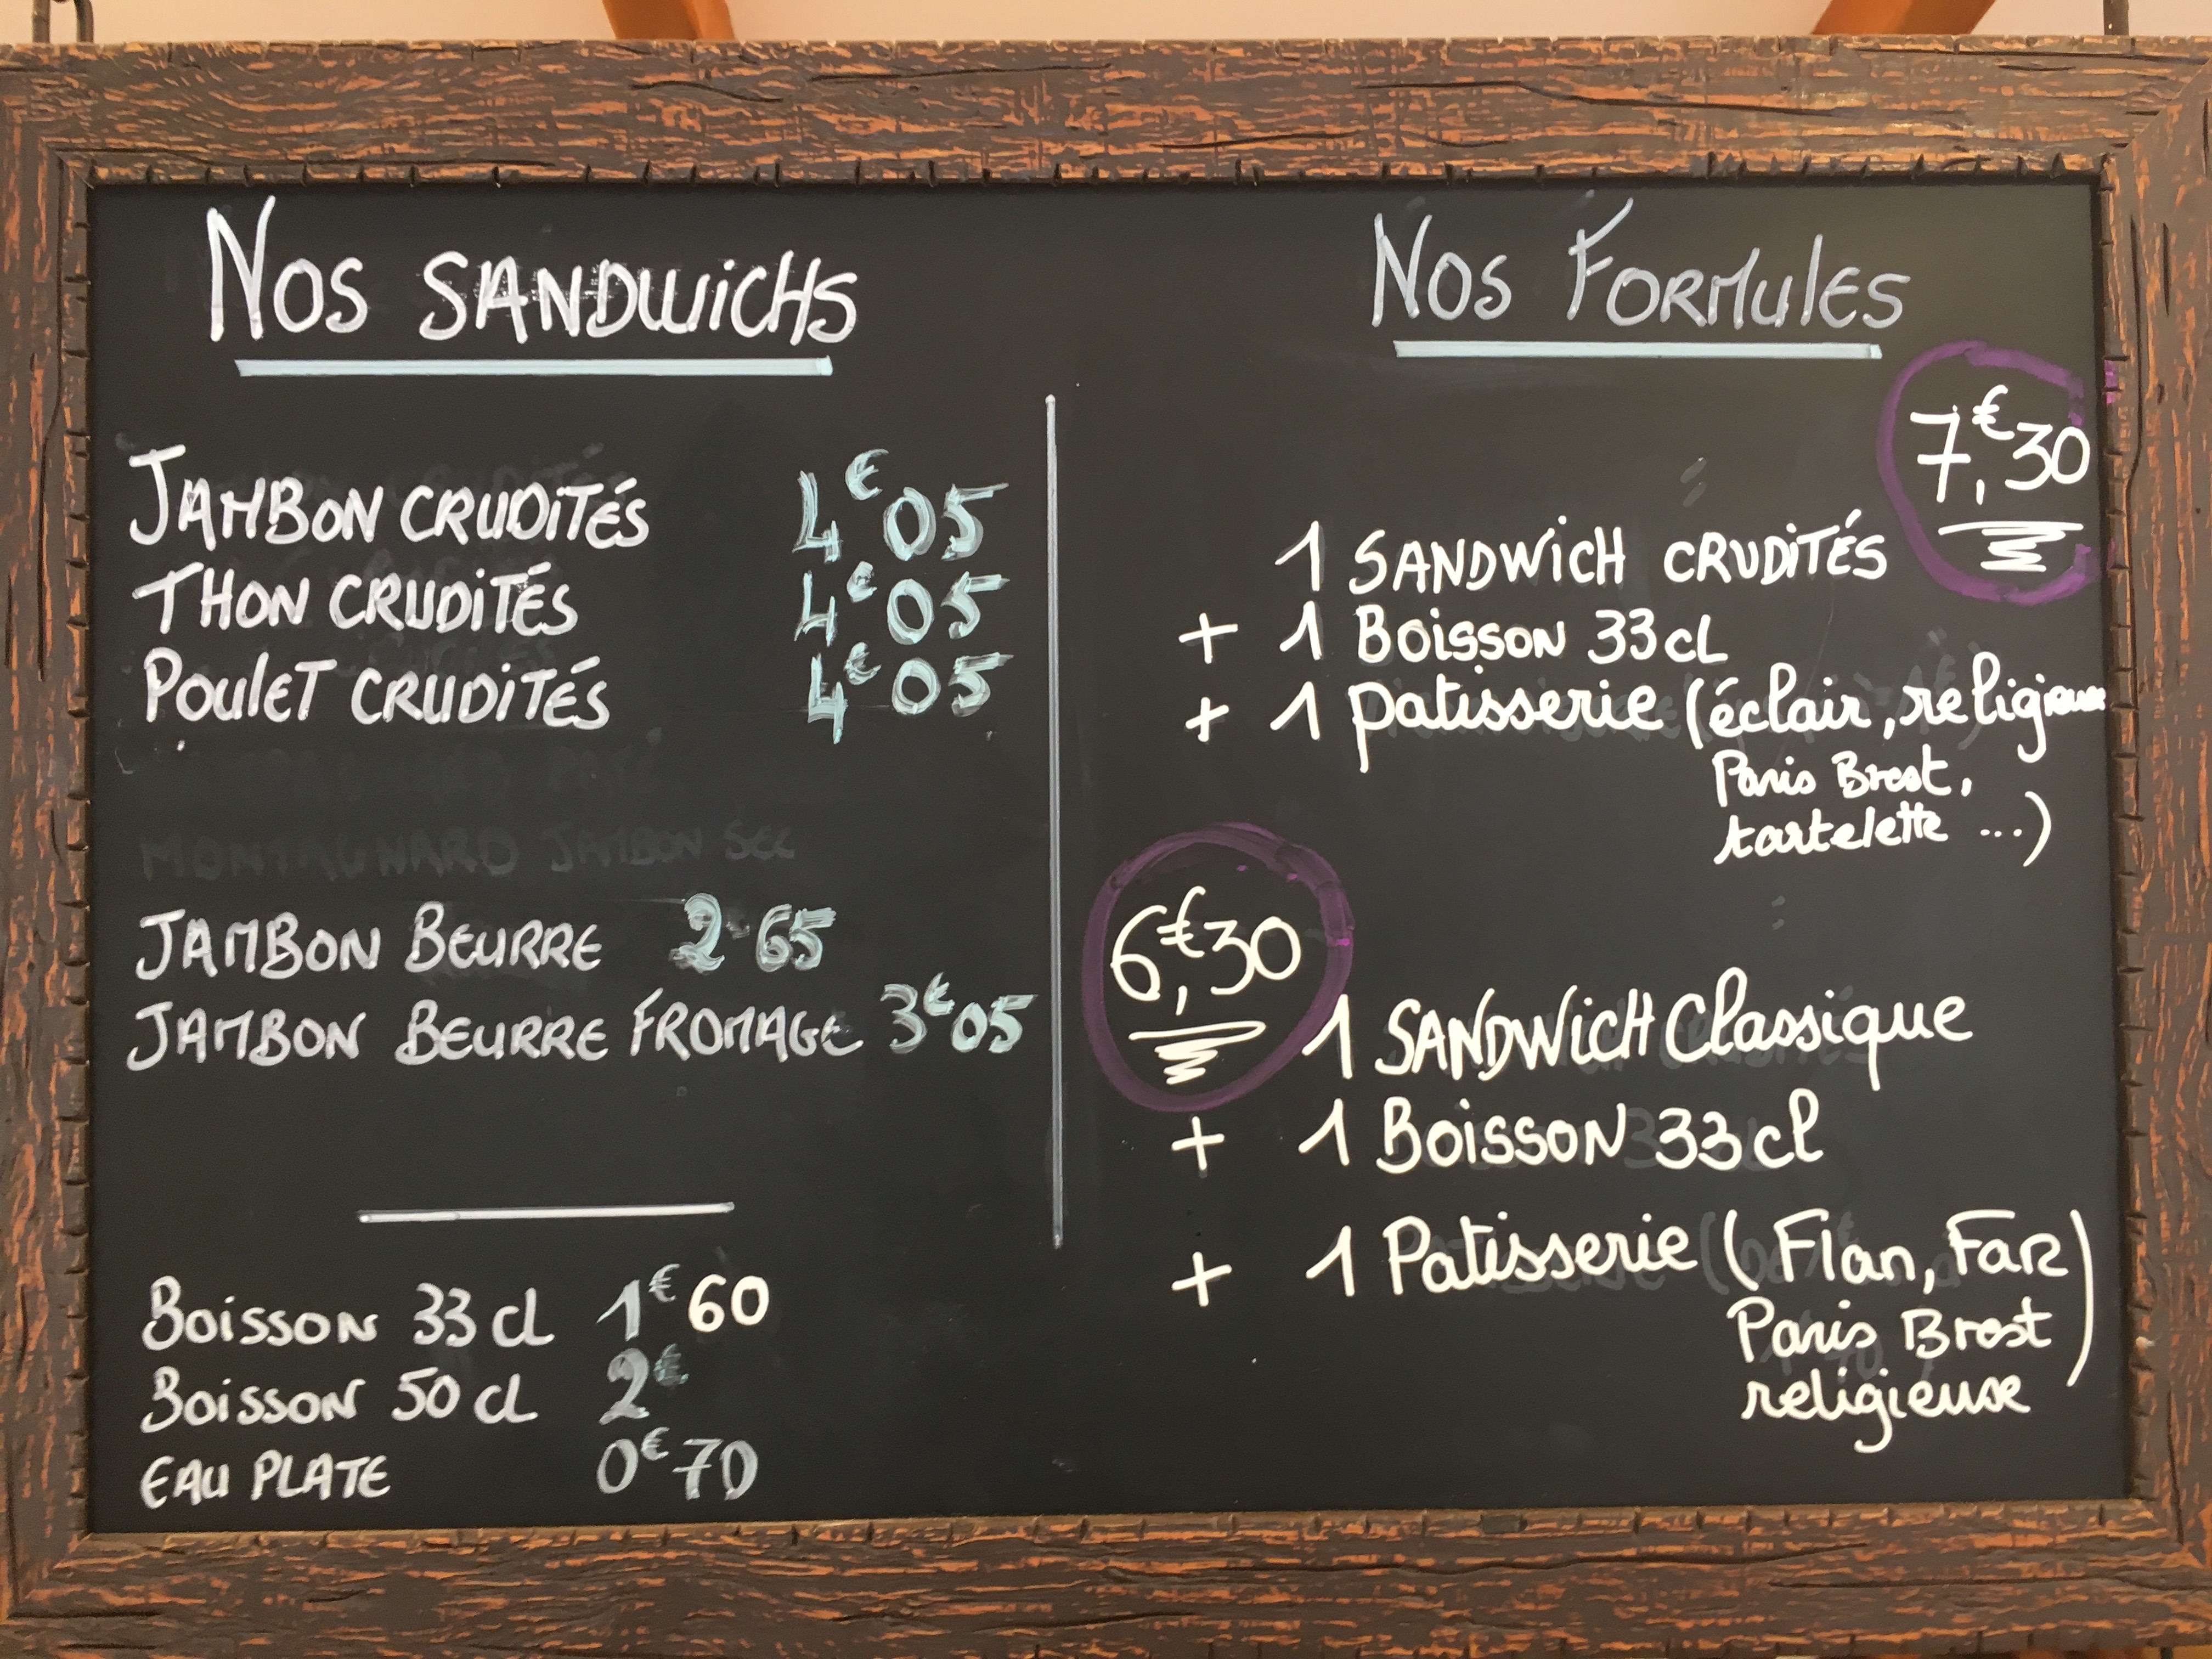 Nos SANDWICHS
JAMBON CRUDITÉS 4€05
THON CRUDITÉS 4€05
POULET CRUDITÉS 4€05
MONTAGNARD JAMBON SEC
JAMBON BEURRE 2€65
JAMBON BEURRE FROMAGE 3€05
Boisson 33 cl 1€60
Boisson 50 cl 2€
EAU PLATE 0€70
Nos FORMULES
7,€30
1 SANDWICH CRUDITÉS
+ 1 BOISSON 33 cL
+ 1 patisserie (éclair, religieuse
Paris Brest,
tartelette ...)
6,€30
1 SANDWICH Classique
+ 1 BOISSON 33 cl
+ 1 Patisserie (Flan, FAR)
Paris Brest
religieuse